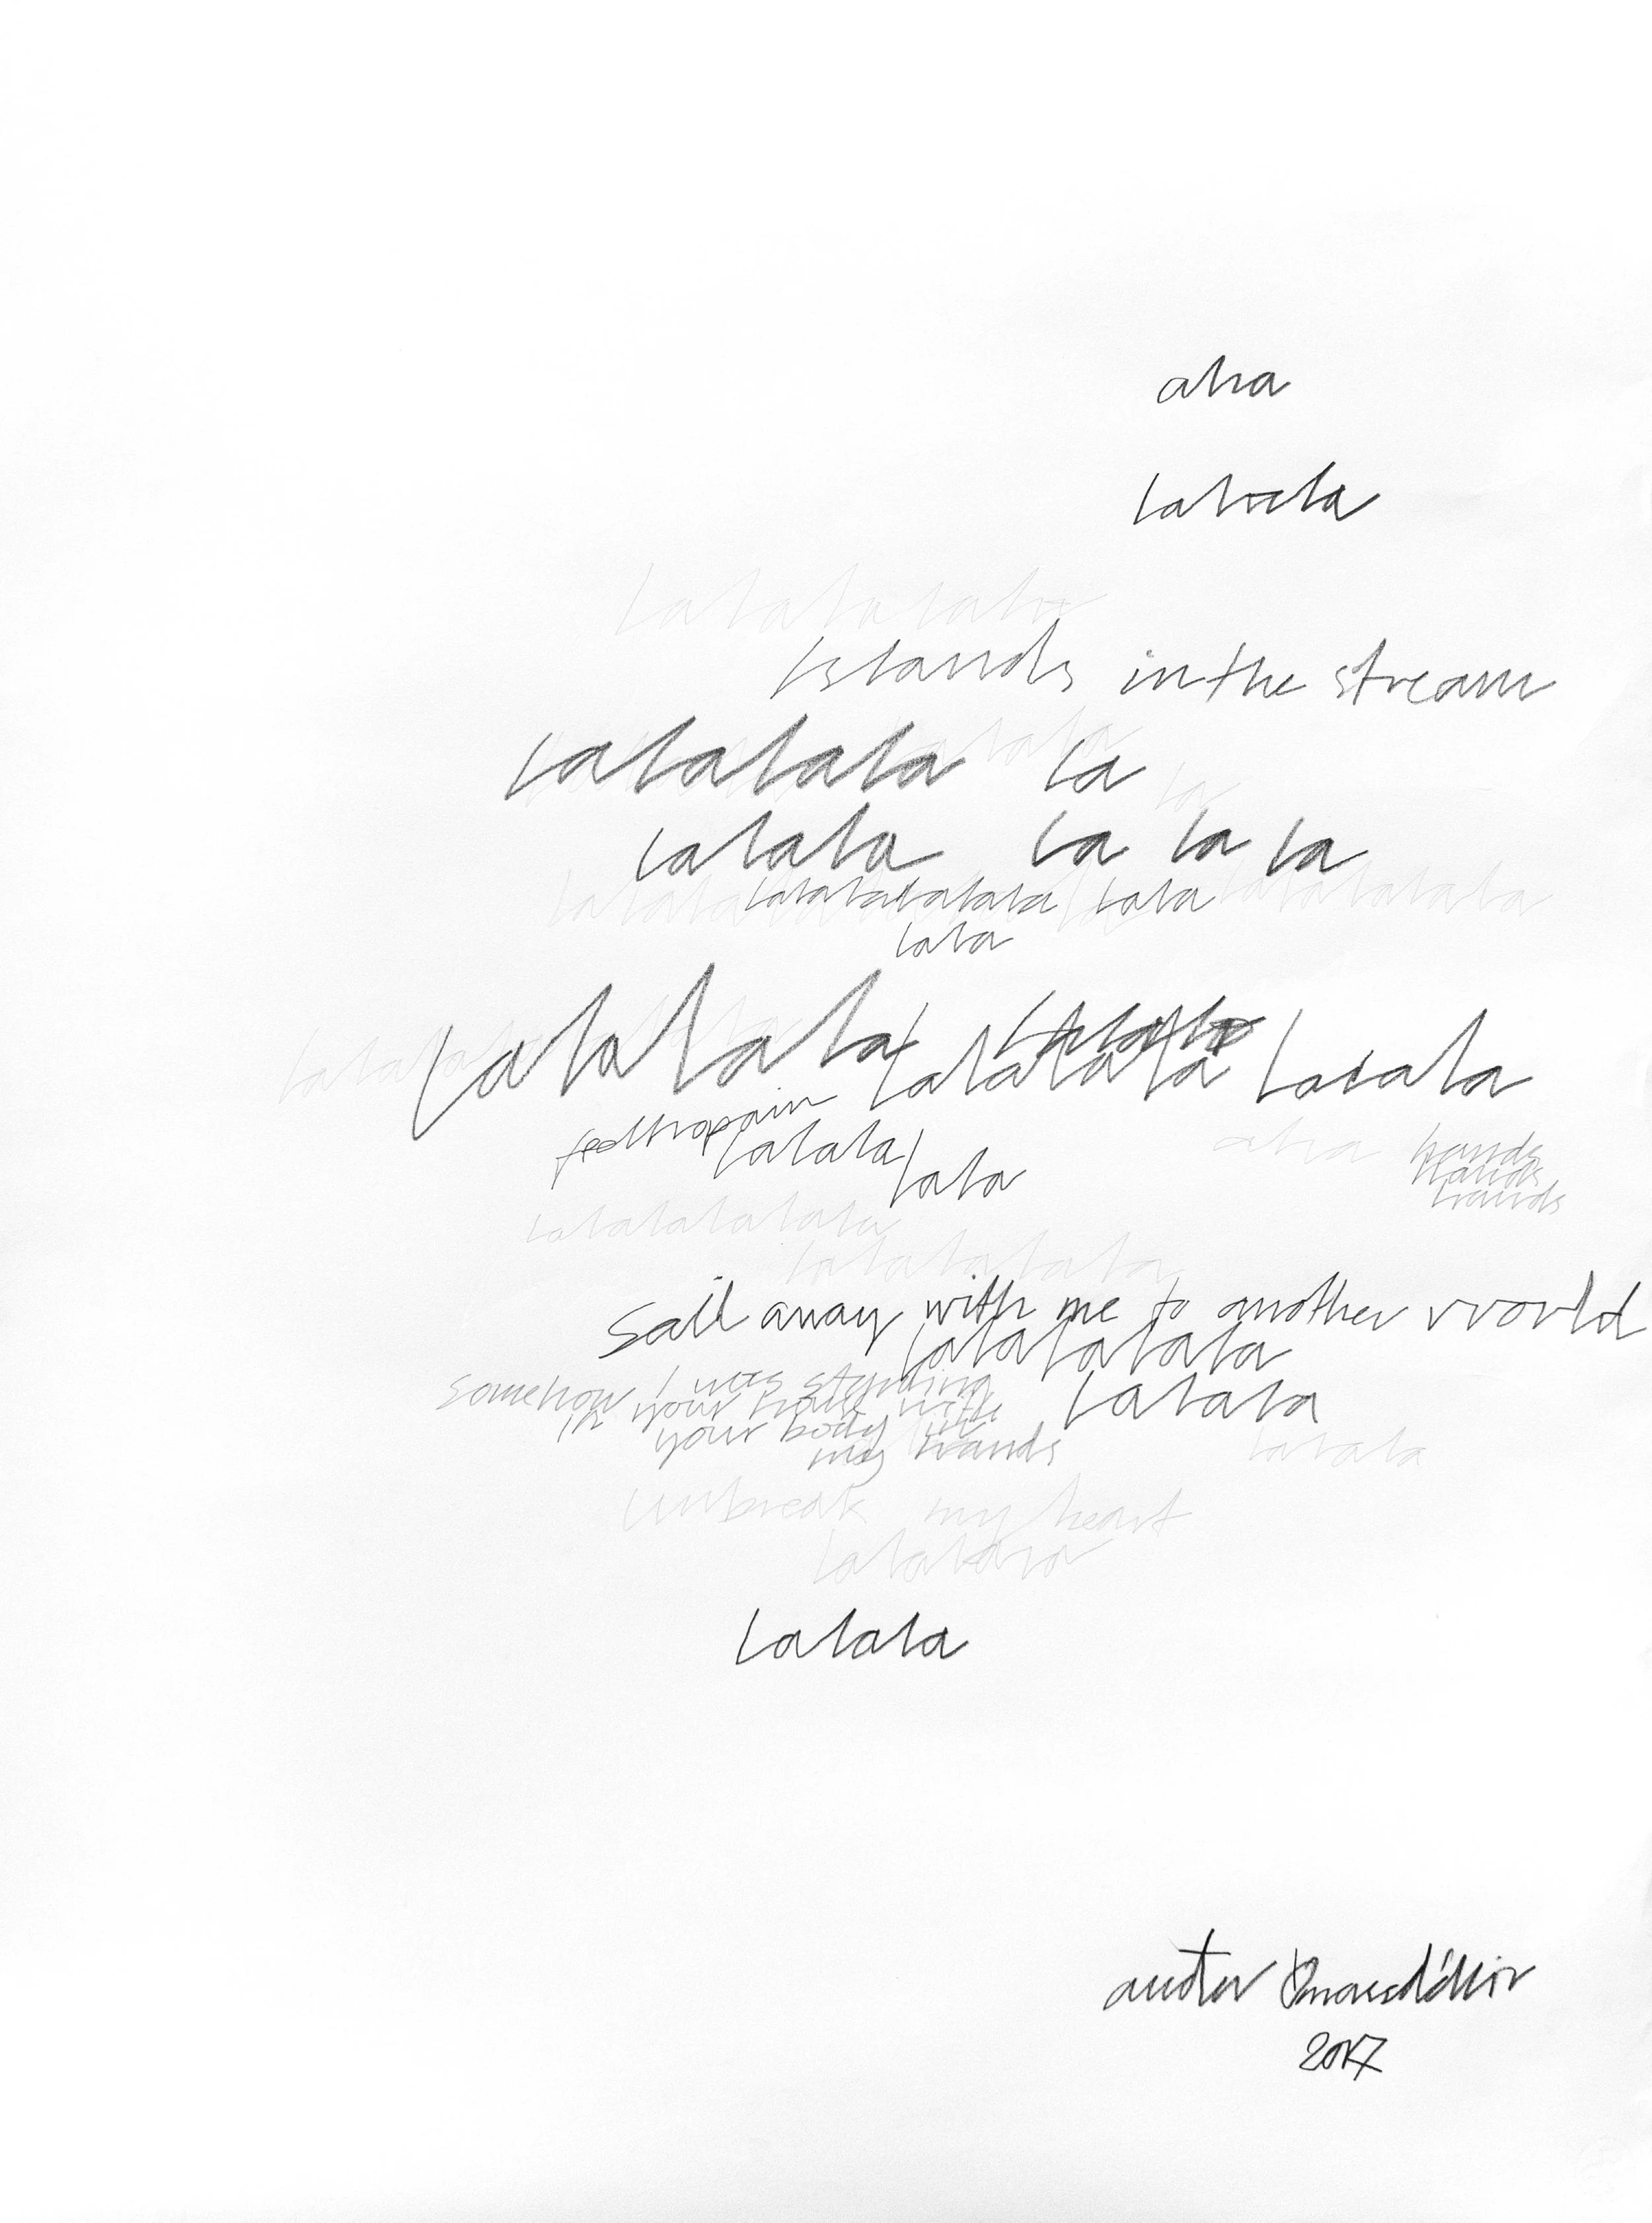 aha
lalala
lalalalalala
Islands in the stream
lalalalala la
lalala la la la
lalalalalalala lala
lala
lalalala lalalala lalala
feel the pain
lalala
lala
aha hands
hands
hands
lalalalalalala
lalalalalala
Sail away with me to another world
lalalalalala
somehow I was standing
in your with
your body in
my hands
lalala
lalala
unbreak my heart
lalalala
lalala
2017